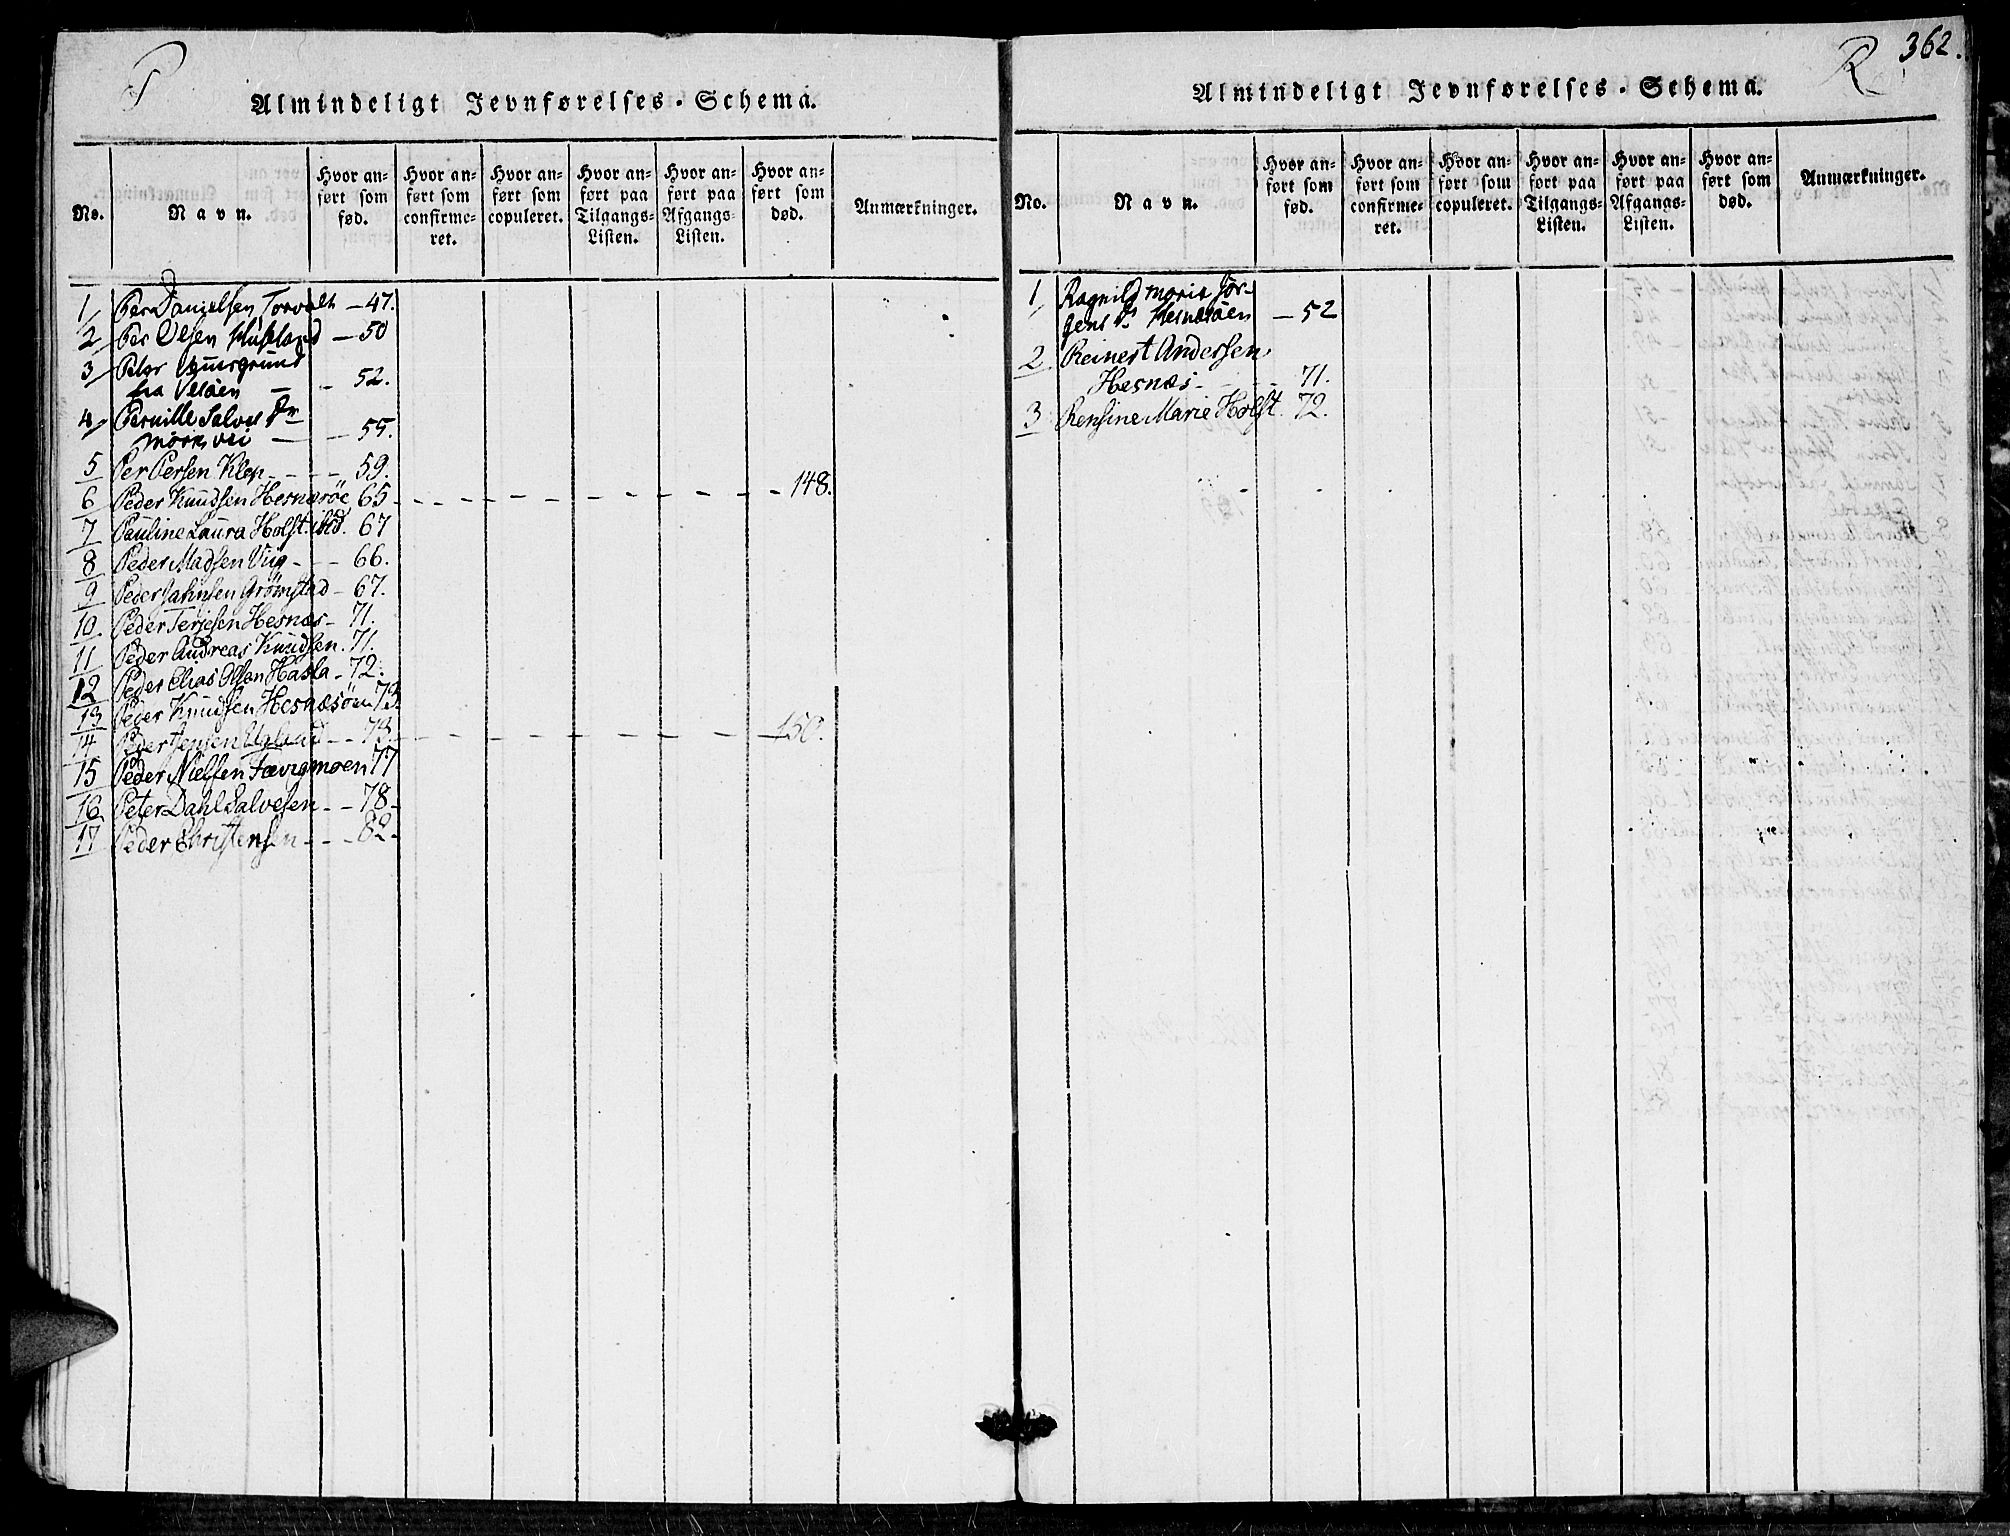 P
Almindeligt Jevnførelses-Schema.
No.
Navn.
Hvor an-
ført som
fød.
Hvor an-
ført som
confirme-
ret.
Hvor an-
ført som
copuleret.
Hvor an-
ført paa
Tilgangs-
Listen.
Hvor an-
ført paa
Afgangs-
Listen.
Hvor an-
ført som
død.
Anmærkninger.
1 Per Danielsen Torvalt — 47.
2 Per Olsen — 50
3 Peter
fra Vesøen — 52.
4 Pernille Salves Dr
— 55.
5 Per Persen Klep — 59.
6 Peder Knudsen Hesnæsöe 65 - - - 148.
7 Pauline Laura Holst ibid. 67
8 Peder Madsen Viig - - - 66.
9 Peder Jahnsen Grömstad - 67.
10. Peder Terjesen Hesnæs - 71.
11 Peder Andreas Knudsen. 71.
12 Peder Elias Olsen Hasla - 72.
13 Peder Knudsen Hesnæsöen 73.
14 Peder Jensen Ugland - - 73. - - - 150.
15 Peder Nielsen Fævigmoen 77
16 Peter Dahl Salvesen - - 78-
17 Peder Christensen - - - 82-
R
362.
Almindeligt Jevnførelses-Schema.
No.
Navn.
Hvor an-
ført som
fød.
Hvor an-
ført som
confirme-
ret.
Hvor an-
ført som
copuleret.
Hvor an-
ført paa
Tilgangs-
Listen.
Hvor an-
ført paa
Afgangs-
Listen.
Hvor an-
ført som
død.
Anmærkninger.
1 Ragnild Maria Jör-
gens D. Hesnesöen — 52
2 Reinert Andersen
Hesnæs - - - 71.
3 Rensine Marie Holst. 72.